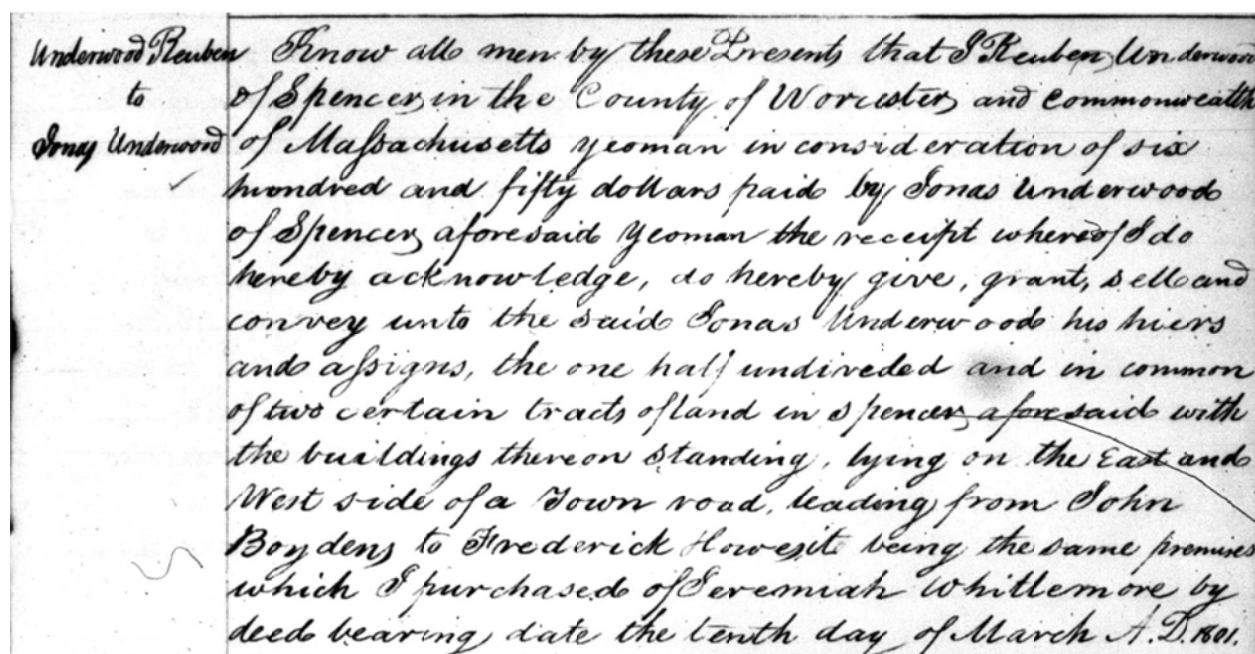 Underwood Reuben
to
Jonas Underwood
Know all men by these Presents that I Reuben Underwood
of Spencer, in the County of Worcester, and commonwealth
of Massachusetts yeoman in consideration of six
hundred and fifty dollars paid by Jonas Underwood
of Spencer, aforesaid yeoman the receipt whereof I do
hereby acknowledge, do hereby give, grant, sell and
convey unto the said Jonas Underwood his hiers
and assigns, the one half undivided and in common
of two certain tracts of land in Spencer, aforesaid with
the buildings thereon standing, lying on the East and
West side of a Town road, leading from John
Boydens, to Frederick Howes, it being the same premises
which I purchased of Jeremiah Whittemore by
deed bearing date the tenth day of March A.D. 1801.